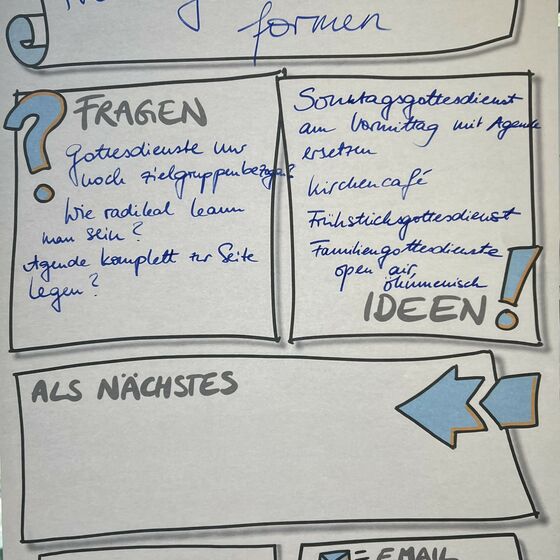 formen
FRAGEN
Gottesdienste nur
noch zielgruppenbezogen?
Wie radikal kann
man sein?
Agende komplett zur Seite
legen?
Sonntagsgottesdienst
am Vormittag mit Agende
ersetzen
Kirchencafé
Frühstücksgottesdienst
Familiengottesdienste
open air,
ökumenisch
IDEEN
ALS NÄCHSTES
= EMAIL